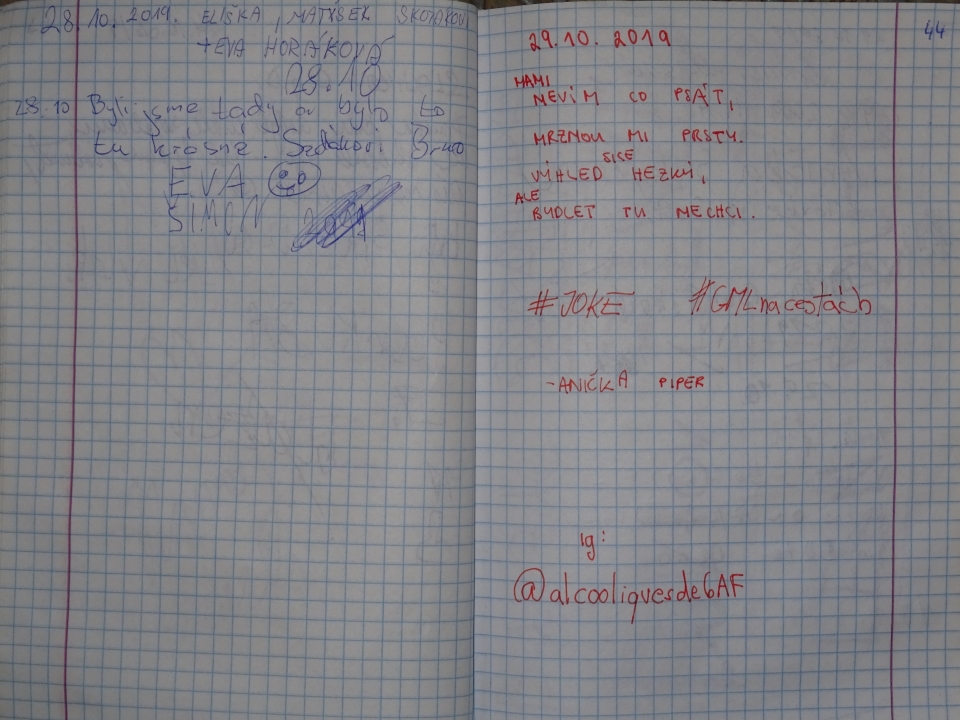 28.10.2019. ELIŠKA, MATÝSEK SKOTÁKOVI
+ EVA HORÁKOVÁ
28.10
28.10 Byli jsme tady a bylo to
tu krásné. Sedlákovi Brno
EVA
ŠIMON 2011
44
29.10. 2019
MAMI
NEVÍM CO PSÁT,
MRZNOU MI PRSTY.
SICE
VÝHLED HEZKÝ,
ALE
BYDLET TU NECHCI.
#JOKE #GMLnacestách
-ANIČKA PIPER
ig:
@alcooliquesde6AF